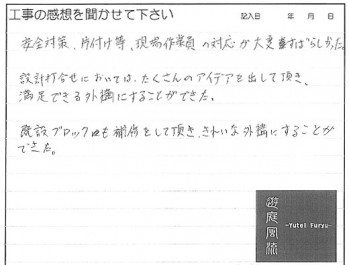 工事の感想を聞かせて下さい
記入日　年　月　日
安全対策、片付け等、現場作業員の対応が大変すばらしかった。
設計打合せにおいては、たくさんのアイデアを出して頂き、
満足できる外構にすることができた。
既設ブロック塀も補修をして頂き、きれいな外構にすることが
できた。
遊庭風流
-Yutei Furyu-